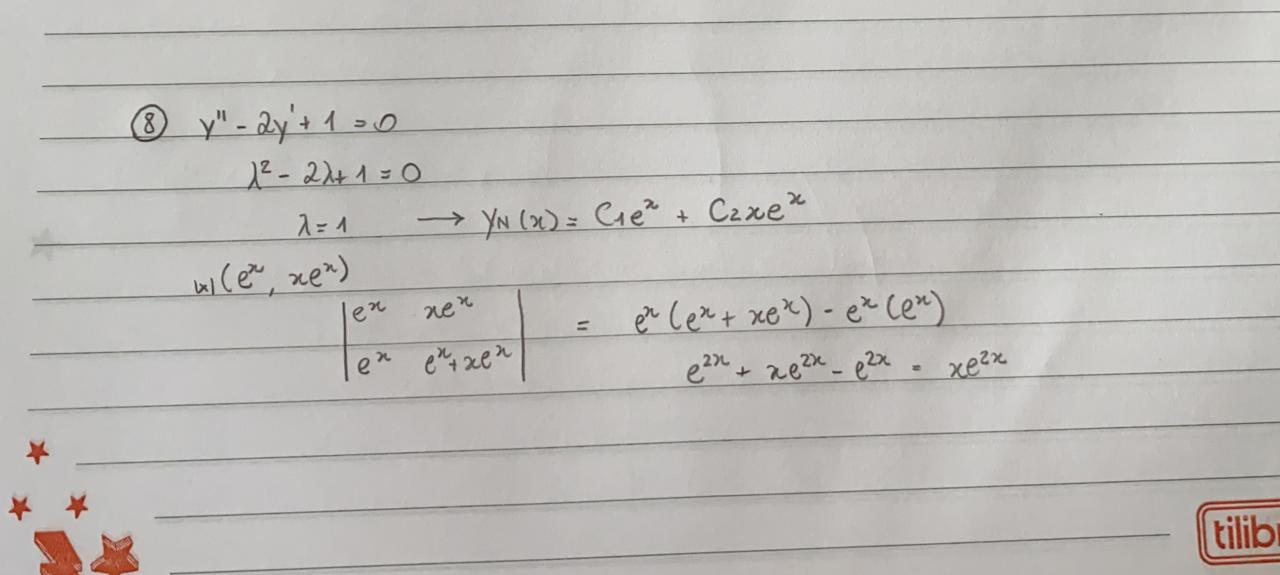 ⑧ y'' - 2y' + 1 = 0
λ² - 2λ + 1 = 0
λ = 1 → yN(x) = C1e^x + C2xe^x
W(e^x, xe^x)
|e^x xe^x| = e^x(e^x + xe^x) - e^x(e^x)
|e^x e^x + xe^x| e^2x + xe^2x - e^2x = xe^2x
tilib